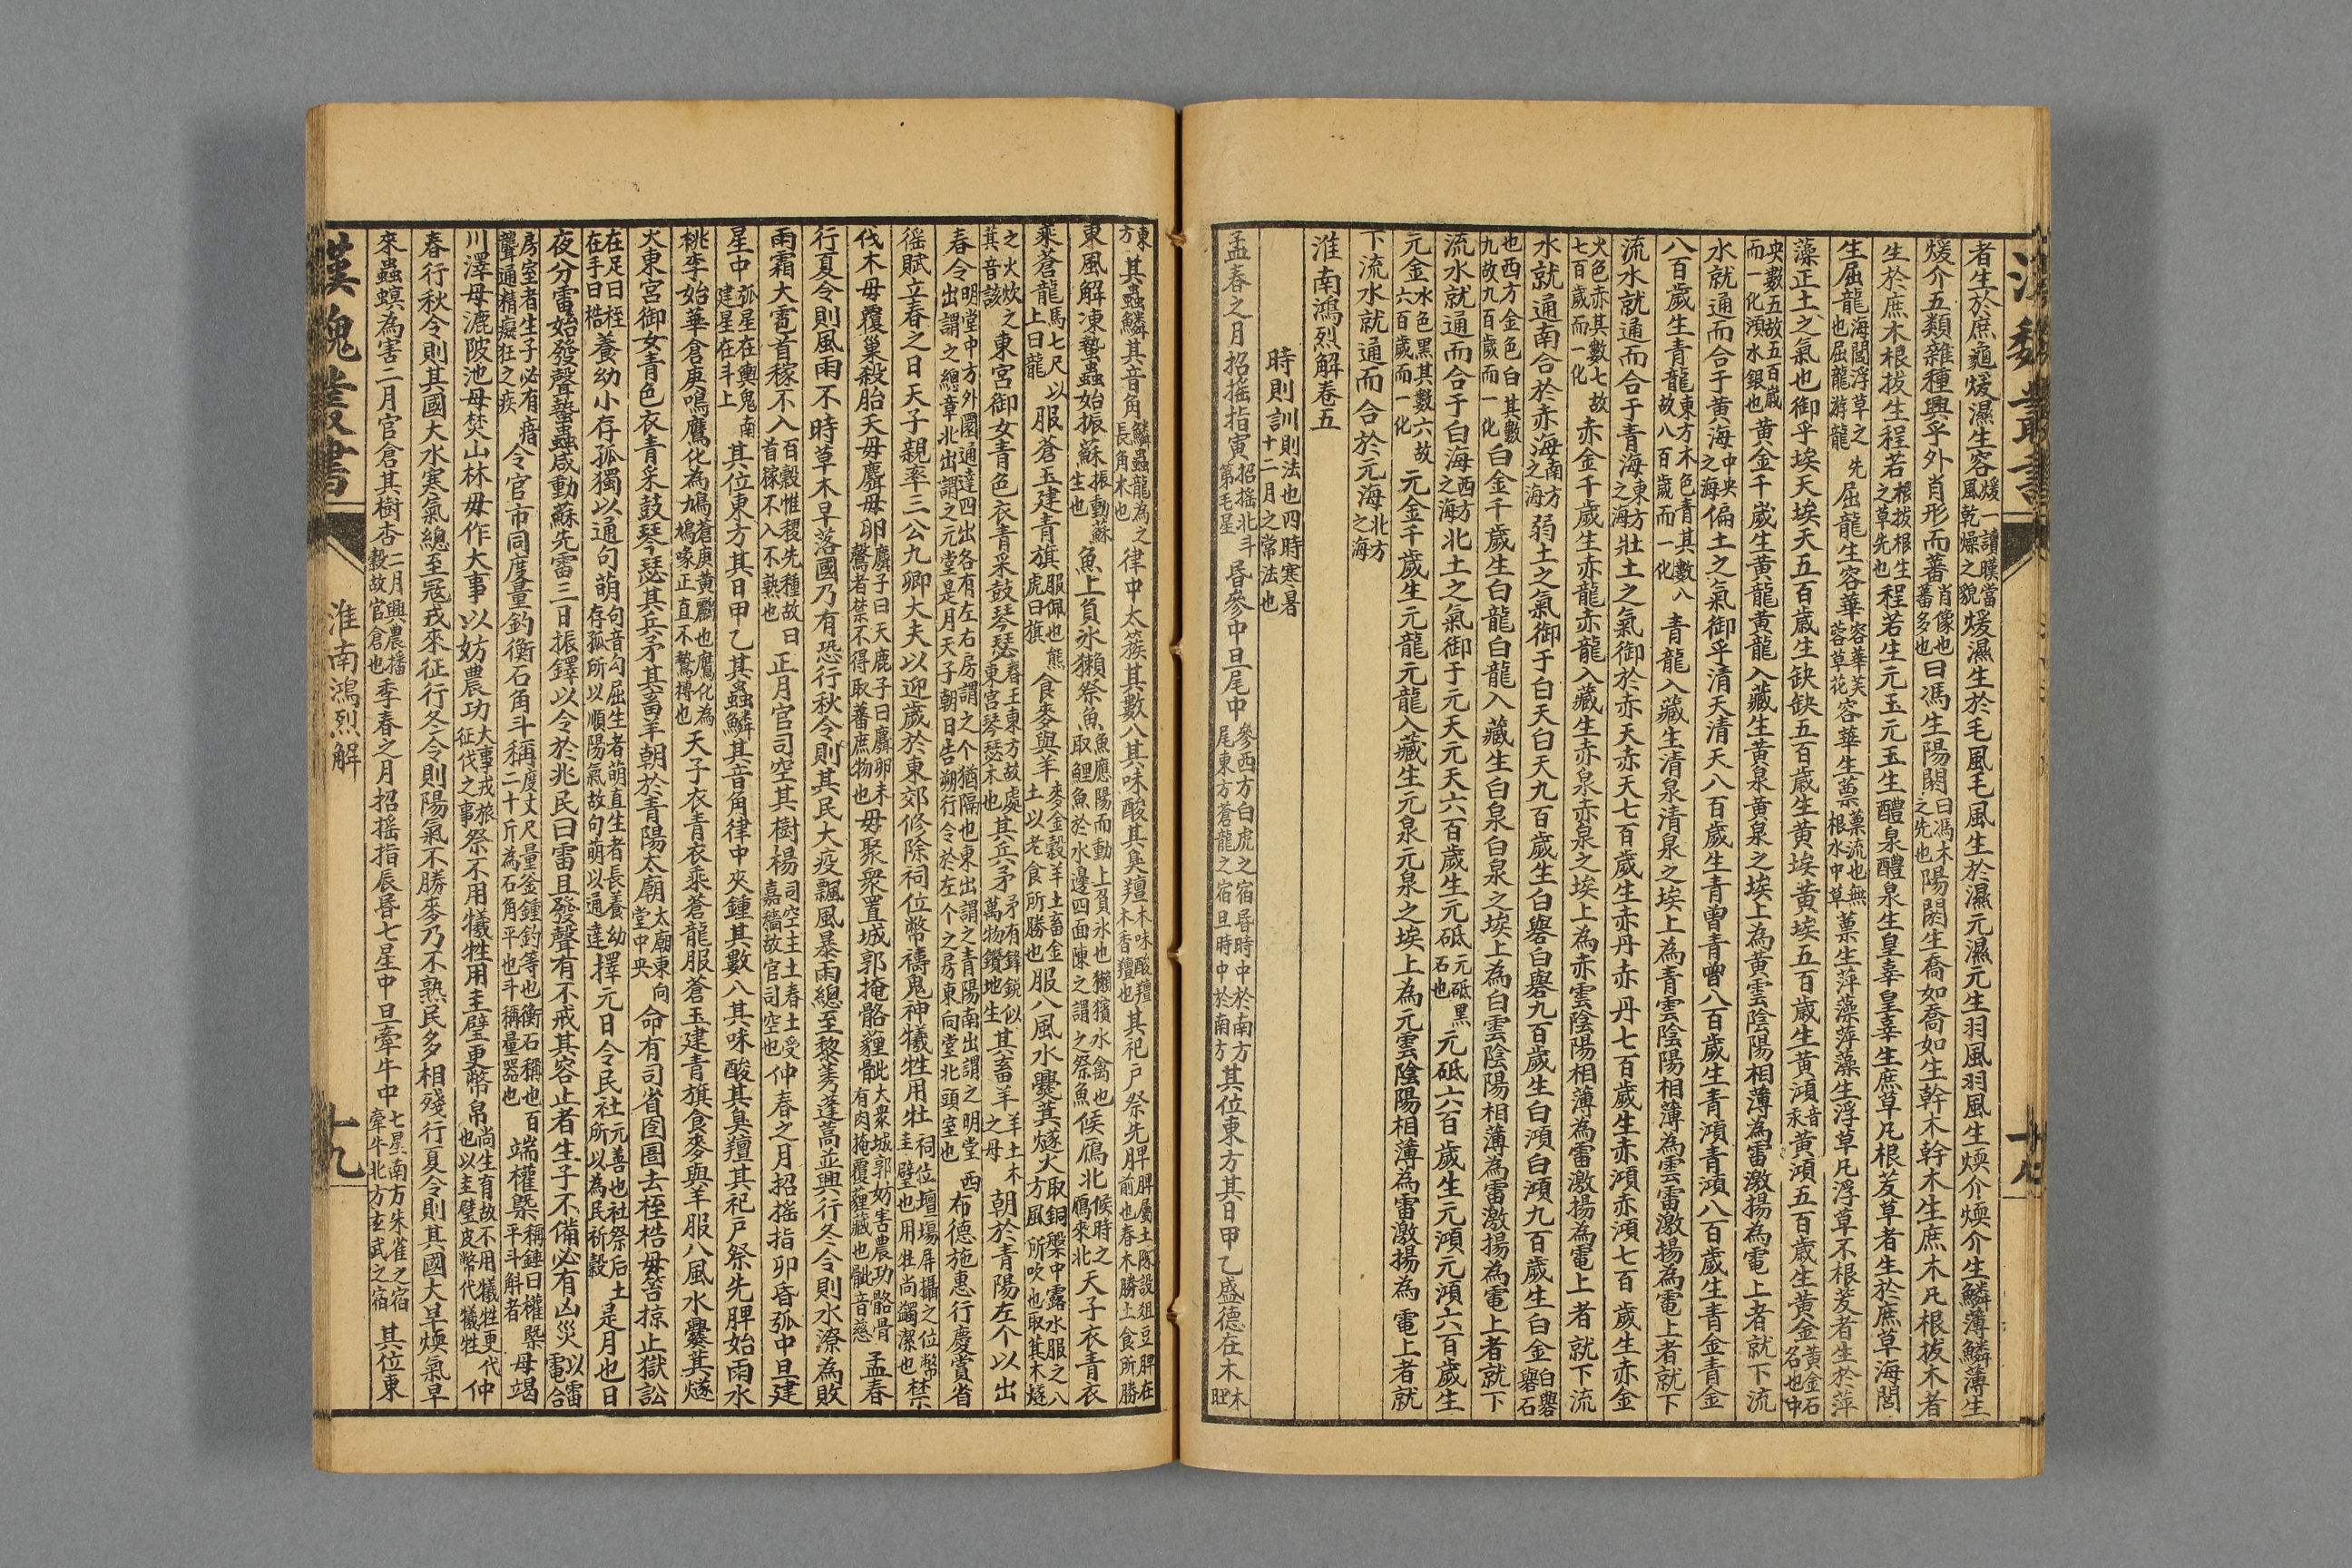 漢魏叢書
者生於庶龜煖濕生容煖一讀暵當風乾燥之貌煖濕生於毛風毛風生於濕元濕元生羽風羽風生煗介煗介生鱗薄鱗薄生
煖介五類雜種興乎外肖形而蕃肖像也蕃多也日馮生陽閼日馮木之先也陽閼生喬如喬如生幹木幹木生庶木凡根拔木者
生於庶木根拔生程若根拔根生之草先也程若生元玉元玉生醴泉醴泉生皇辜皇辜生庶草凡根茇草者生於庶草海閭
生屈龍海閭浮草之先也屈龍游龍屈龍生容華容華芙蓉草花容華生蔈蔈流也無根水中草蔈生萍藻萍藻生浮草凡浮草不根茇者生於萍
藻正土之氣也御乎埃天埃天五百歲生缺缺五百歲生黃埃黃埃五百歲生黃澒音汞黃澒五百歲生黃金黃金石名也中
央數五故五百歲而一化澒水銀也黃金千歲生黃龍黃龍入藏生黃泉黃泉之埃上為黃雲陰陽相薄為雷激揚為電上者就下流
水就通而合于黃海中央之海偏土之氣御乎清天清天八百歲生青曾青曾八百歲生青澒青澒八百歲生青金青金
八百歲生青龍東方木色青其數八故八百歲而一化青龍入藏生清泉清泉之埃上為青雲陰陽相薄為雲雷激揚為電上者就下
流水就通而合于青海東方之海壯土之氣御於赤天赤天七百歲生赤丹赤丹七百歲生赤澒赤澒七百歲生赤金
火色赤其數七故七百歲而一化赤金千歲生赤龍赤龍入藏生赤泉赤泉之埃上為赤雲陰陽相薄為雷激揚為電上者就下流
水就通南合於赤海南方之海弱土之氣御于白天白天九百歲生白礜白礜九百歲生白澒白澒九百歲生白金白礜礜石
也西方金色白其數九故九百歲而一化白金千歲生白龍白龍入藏生白泉白泉之埃上為白雲陰陽相薄為雷激揚為電上者就下
流水就通而合于白海西方之海北土之氣御于元天元天六百歲生元砥元砥黑石也元砥六百歲生元澒元澒六百歲生
元金水色黑其數六故六百歲而一化元金千歲生元龍元龍入藏生元泉元泉之埃上為元雲陰陽相薄為雷激揚為電上者就
下流水就通而合於元海北方之海
淮南鴻烈解卷五
時則訓則法也四時寒暑十二月之常法也
孟春之月招搖指寅招搖北斗第七星昏參中旦尾中參西方白虎之宿昏時中於南方尾東方蒼龍之宿旦時中於南方其位東方其日甲乙盛德在木木旺
東方其蟲鱗其音角鱗蟲龍為之長角木也律中太簇其數八其味酸其臭羶木味酸羶木香羶也其祀戶祭先脾脾屬土陳設俎豆脾在前也春木勝土食所勝
東風解凍蟄蟲始振蘇振動蘇生也魚上負氷獺祭魚魚應陽而動上負氷也獺獱水禽也取鯉魚於水邊四面陳之謂之祭魚候鴈北候時之鴈來北天子衣青衣
乘蒼龍馬七尺以上曰龍服蒼玉建青旗服佩也熊虎曰旗食麥與羊麥金穀羊土畜金土以老食所勝也服八風水爨萁燧火取銅槃中露水服之八方風所吹也取萁木燧
之火炊之萁音該東宮御女青色衣青采鼓琴瑟春王東方故處東宮琴瑟木也其兵矛矛有鋒銳似萬物鑽地生其畜羊羊土木之母朝於青陽左个以出
春令明堂中方外圜通達四出各有左右房謂之个猶隔也東出謂之青陽南出謂之明堂西出謂之總章北出謂之元堂是月天子朝日告朔行令於左个之房東向堂北頭室也布德施惠行慶賞省
徭賦立春之日天子親率三公九卿大夫以迎歲於東郊修除祠位幣禱鬼神犧牲用牡祠位壇場屏攝之位幣圭璧也用牲尚蠲潔也禁
伐木毋覆巢殺胎夭毋麛毋卵麋子曰夭鹿子曰麛卵未鷇者禁不得取蕃庶物也毋聚衆置城郭掩骼薶骴大衆城郭妨害農功骼骨有肉掩覆薶藏也骴音慈孟春
行夏令則風雨不時草木早落國乃有恐行秋令則其民大疫飄風暴雨總至黎莠蓬蒿並興行冬令則水潦為敗
雨霜大雹首稼不入百穀惟稷先種故曰首稼不入不熟也正月官司空其樹楊司空主土春土受嘉穡故官司空也仲春之月招搖指卯昏弧中旦建
星中弧星在輿鬼南建星在斗上其位東方其日甲乙其蟲鱗其音角律中夾鍾其數八其味酸其臭羶其祀戶祭先脾始雨水
桃李始華倉庚鳴鷹化為鳩蒼庚黃鸝也鷹化為鳩喙正直不鷙搏也天子衣青衣乘蒼龍服蒼玉建青旗食麥與羊服八風水爨萁燧
火東宮御女青色衣青采鼓琴瑟其兵矛其畜羊朝於青陽太廟太廟東向堂中央命有司省囹圄去桎梏毋笞掠止獄訟
在足曰桎在手曰梏養幼小存孤獨以通句萌句音勾屈生者萌直生者長養幼存孤所以順陽氣故句萌以通達擇元日令民社元善也社祭后土所以為民祈穀是月也日
夜分雷始發聲蟄蟲咸動蘇先雷三日振鐸以令於兆民曰雷且發聲有不戒其容止者生子不備必有凶災以雷電合
房室者生子必有瘖聾通精癡狂之疾令官市同度量鈞衡石角斗稱度丈尺量釜鍾鈞等也衡石稱也百二十斤為石角平也斗稱量器也端權槩稱錘曰權槩平斗斛者毋竭
川澤毋漉陂池毋焚山林毋作大事以妨農功大事戎旅征伐之事祭不用犧牲用圭璧更幣帛尚生育故不用犧牲更代也以圭璧皮幣代犧牲仲
春行秋令則其國大水寒氣總至寇戎來征行冬令則陽氣不勝麥乃不熟民多相殘行夏令則其國大旱煗氣早
來蟲螟為害二月官倉其樹杏二月興農播穀故官倉也季春之月招搖指辰昏七星中旦牽牛中七星南方朱雀之宿牽牛北方玄武之宿其位東
漢魏叢書
淮南鴻烈解
十九